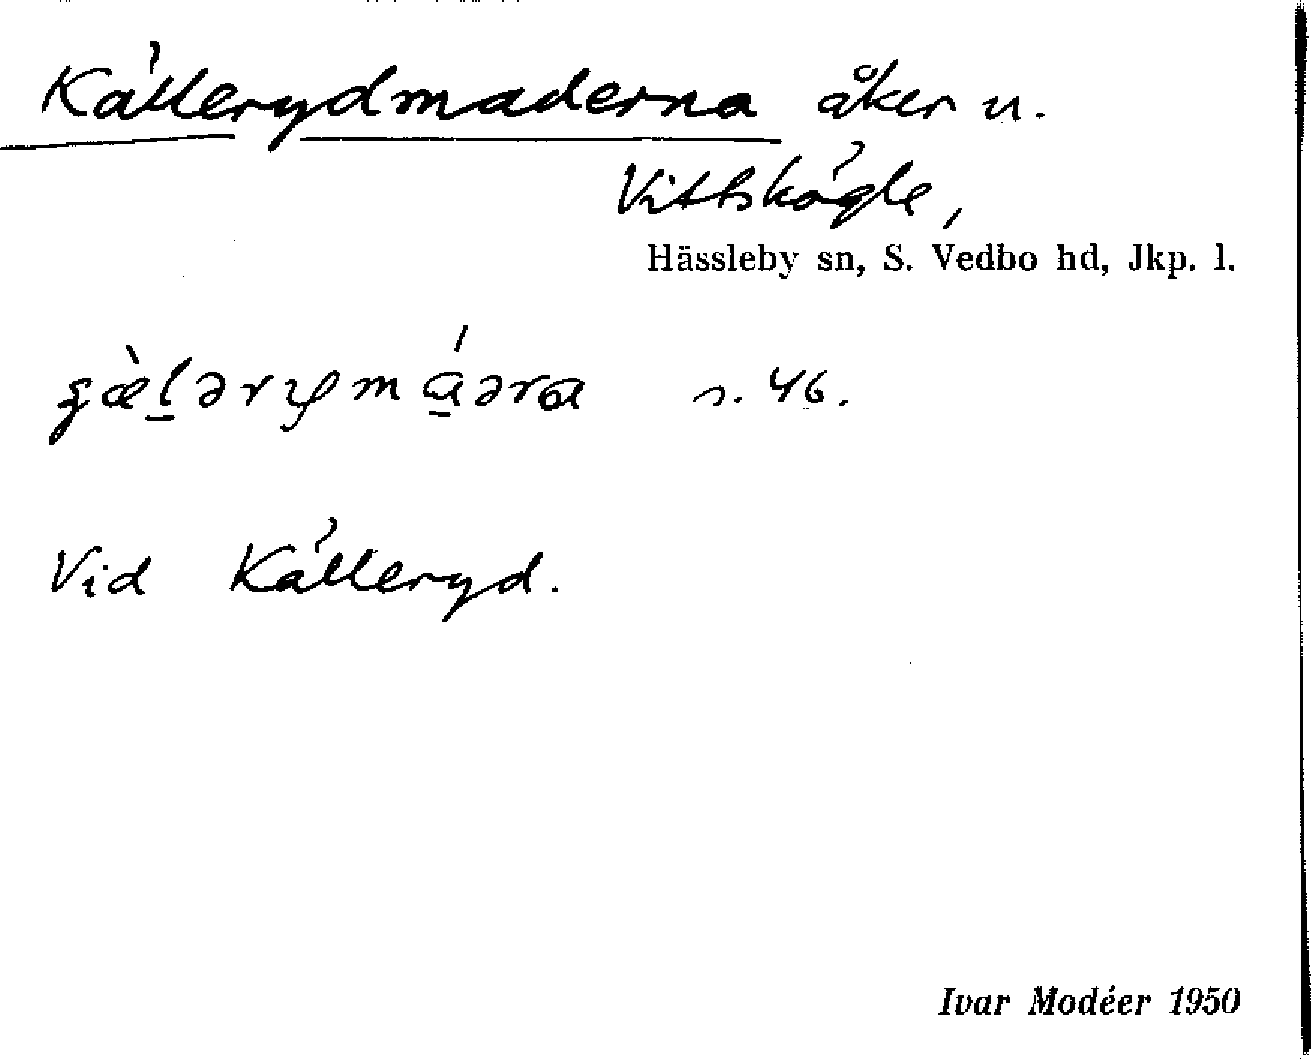 Källerydmaderna åker u.
Vittskögle,
Hässleby sn, S. Vedbo hd, Jkp. l.
s. 46.
Vid Källeryd.
Ivar Modéer 1950